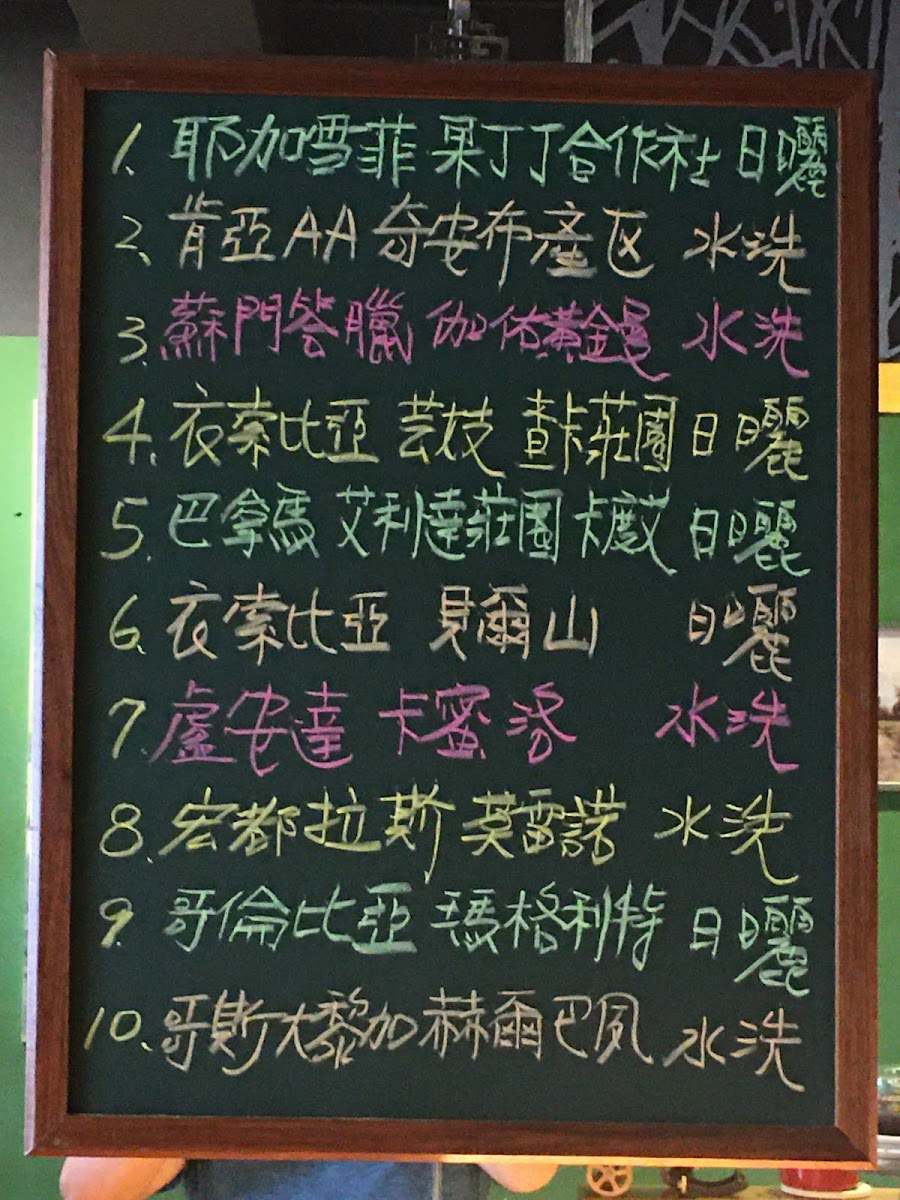 1. 耶加雪菲 果丁丁合作社 日曬
2. 肯亞AA 奇安布產区 水洗
3. 蘇門答臘 伽佑黃金曼 水洗
4. 衣索比亞 芸妓 查卡莊園 日曬
5. 巴拿馬 艾利達莊園 卡度艾 日曬
6. 衣索比亞 貝爾山 日曬
7. 盧安達 卡蜜洛 水洗
8. 宏都拉斯 莫雷諾 水洗
9. 哥倫比亞 瑪格利特 日曬
10. 哥斯大黎加 赫爾巴夙 水洗